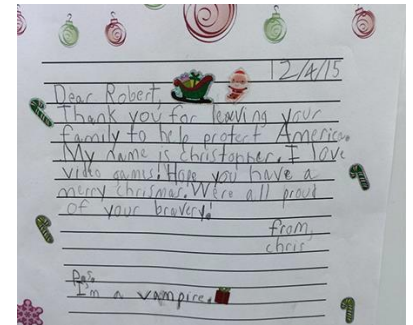 12/4/15
Dear Robert,
Thank you for leaving your
family to help protect America.
My name is christopher. I love
video games! Hope you have a
merry chrismas. Were all proud
of your bravery!
from,
chris
P.S.
I'm a vampire.